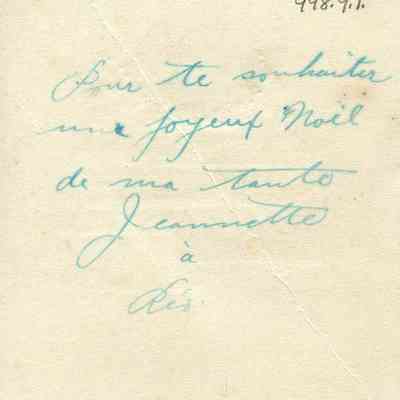 998.9.1.
Pour te souhaiter
une joyeux Noël
de ma tante
Jeannette
à